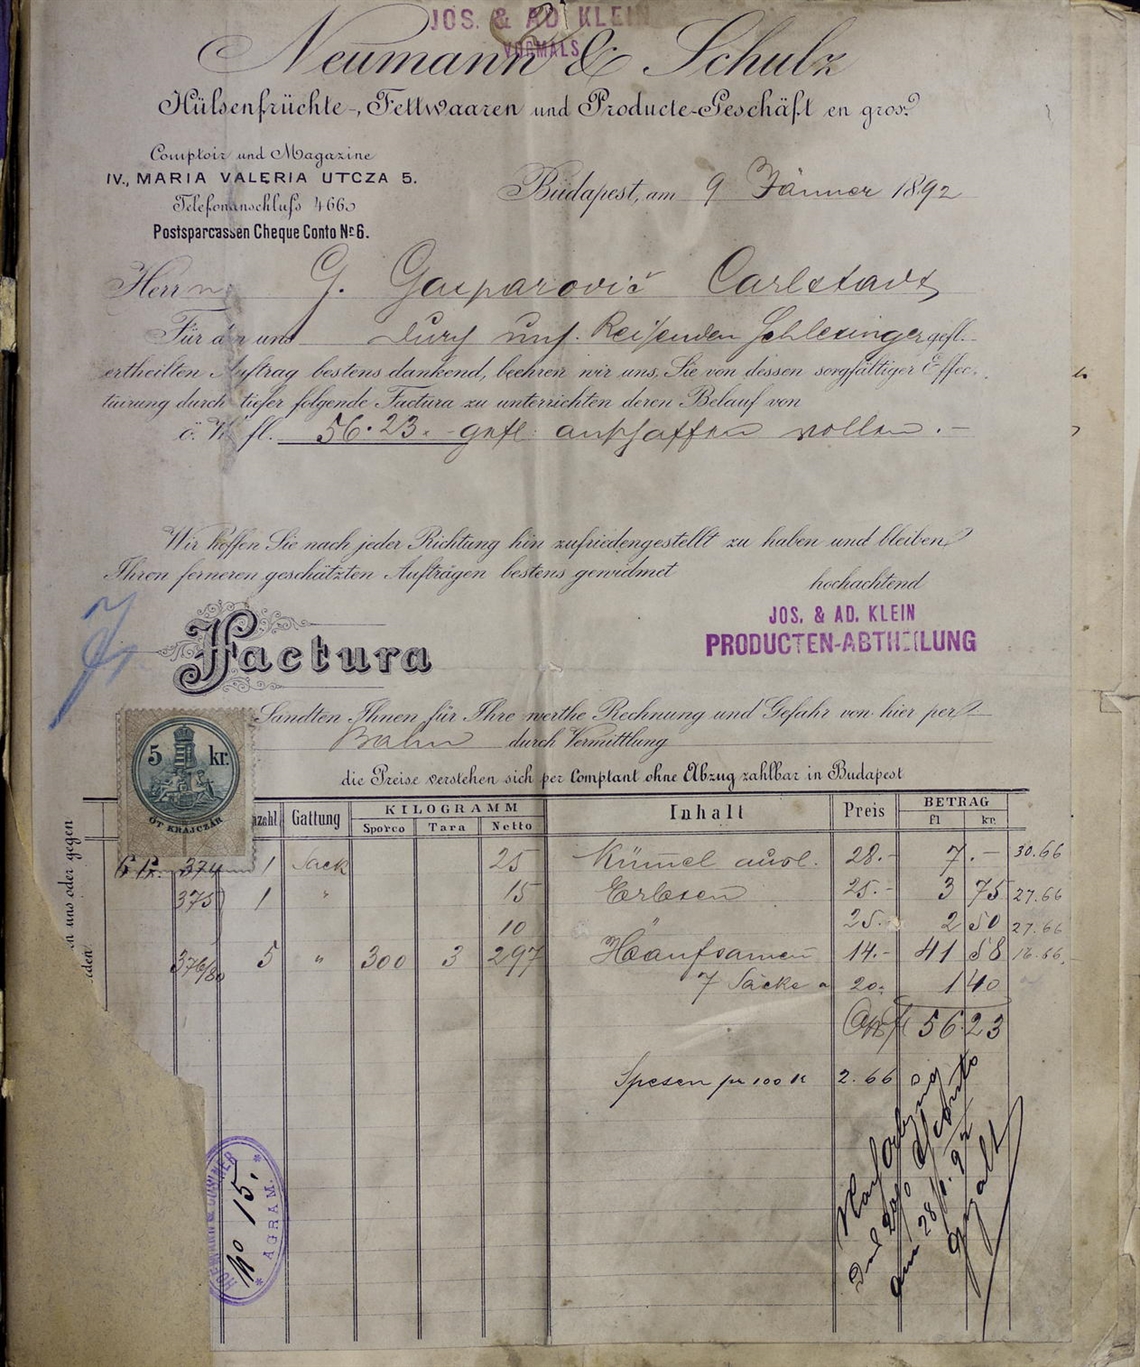 JOS. & AD. KLEIN
VORMALS
Neumann & Schulz
Hülsenfrüchte-, Fettwaaren und Producte-Geschäft en gros.
Comptoir und Magazine
IV., MARIA VALERIA UTCZA 5.
Telefonanschluss 466
Postsparcassen Cheque Conto Nr. 6.
Budapest, am 9 Jänner 1892
Herrn G. Gasparović Carlstadt
Für den uns durch uns. Reisenden Schlesinger gefl.
ertheilten Auftrag bestens dankend, beehren wir uns, Sie von dessen sorgfältiger Effec-
tuirung durch tiefer folgende Factura zu unterrichten deren Belauf von
ö. W. fl. 56.23. gefl. anschaffen wollen.-
Wir hoffen Sie nach jeder Richtung hin zufriedengestellt zu haben und bleiben
Ihren ferneren geschätzten Aufträgen bestens gewidmet
hochachtend
JOS. & AD. KLEIN
PRODUCTEN-ABTHEILUNG
Factura
Sandten Ihnen für Ihre werthe Rechnung und Gefahr von hier per
Bahn durch Vermittlung
die Preise verstehen sich per Comptant ohne Abzug zahlbar in Budapest
5 kr.
ÖT KRAJCZÁR
nzahl Gattung KILOGRAMM Inhalt Preis BETRAG
Sporco Tara Netto fl kr.
374 1 Sack 25 Kümmel 28.- 7.- 30.66
375 1 " 15 Erbsen 25.- 3 75 27.66
10 " 25.- 2 50 27.66
376/80 5 " 300 3 297 Haanfsamen 14.- 41 58 16.66.
7 Säcke a 20. 1 40
56 23
Spesen pr 100 K 2.66
n uns oder gegen
den
No 15.
AGRAM.
Nach Abzug
2% Sconto
am 28/ 92
gezalt